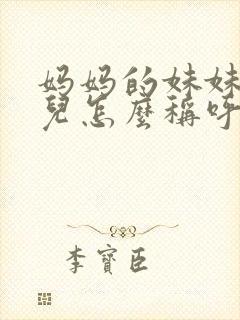 妈妈的妹妹
兒怎麼稱呼
李寶臣